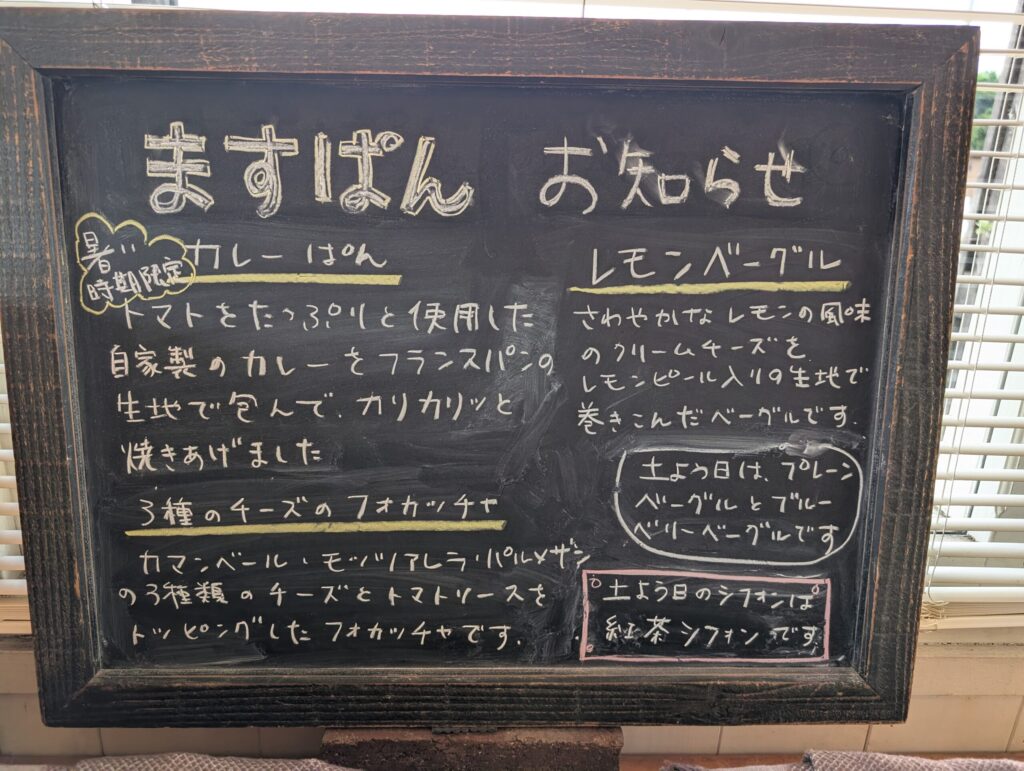 ますぱん お知らせ
暑い
時期限定
カレーぱん
トマトをたっぷりと使用した
自家製のカレーをフランスパンの
生地で包んで、カリカリッと
焼きあげました
3種のチーズのフォカッチャ
カマンベール・モッツァレラ・パルメザン
の3種類のチーズとトマトソースを
トッピングしたフォカッチャです。
レモンベーグル
さわやかな レモンの風味
のクリームチーズを
レモンピール入りの生地で
巻きこんだベーグルです。
土よう日は、プレーン
ベーグルとブルー
ベリーベーグルです
土よう日のシフォンは
紅茶シフォンです